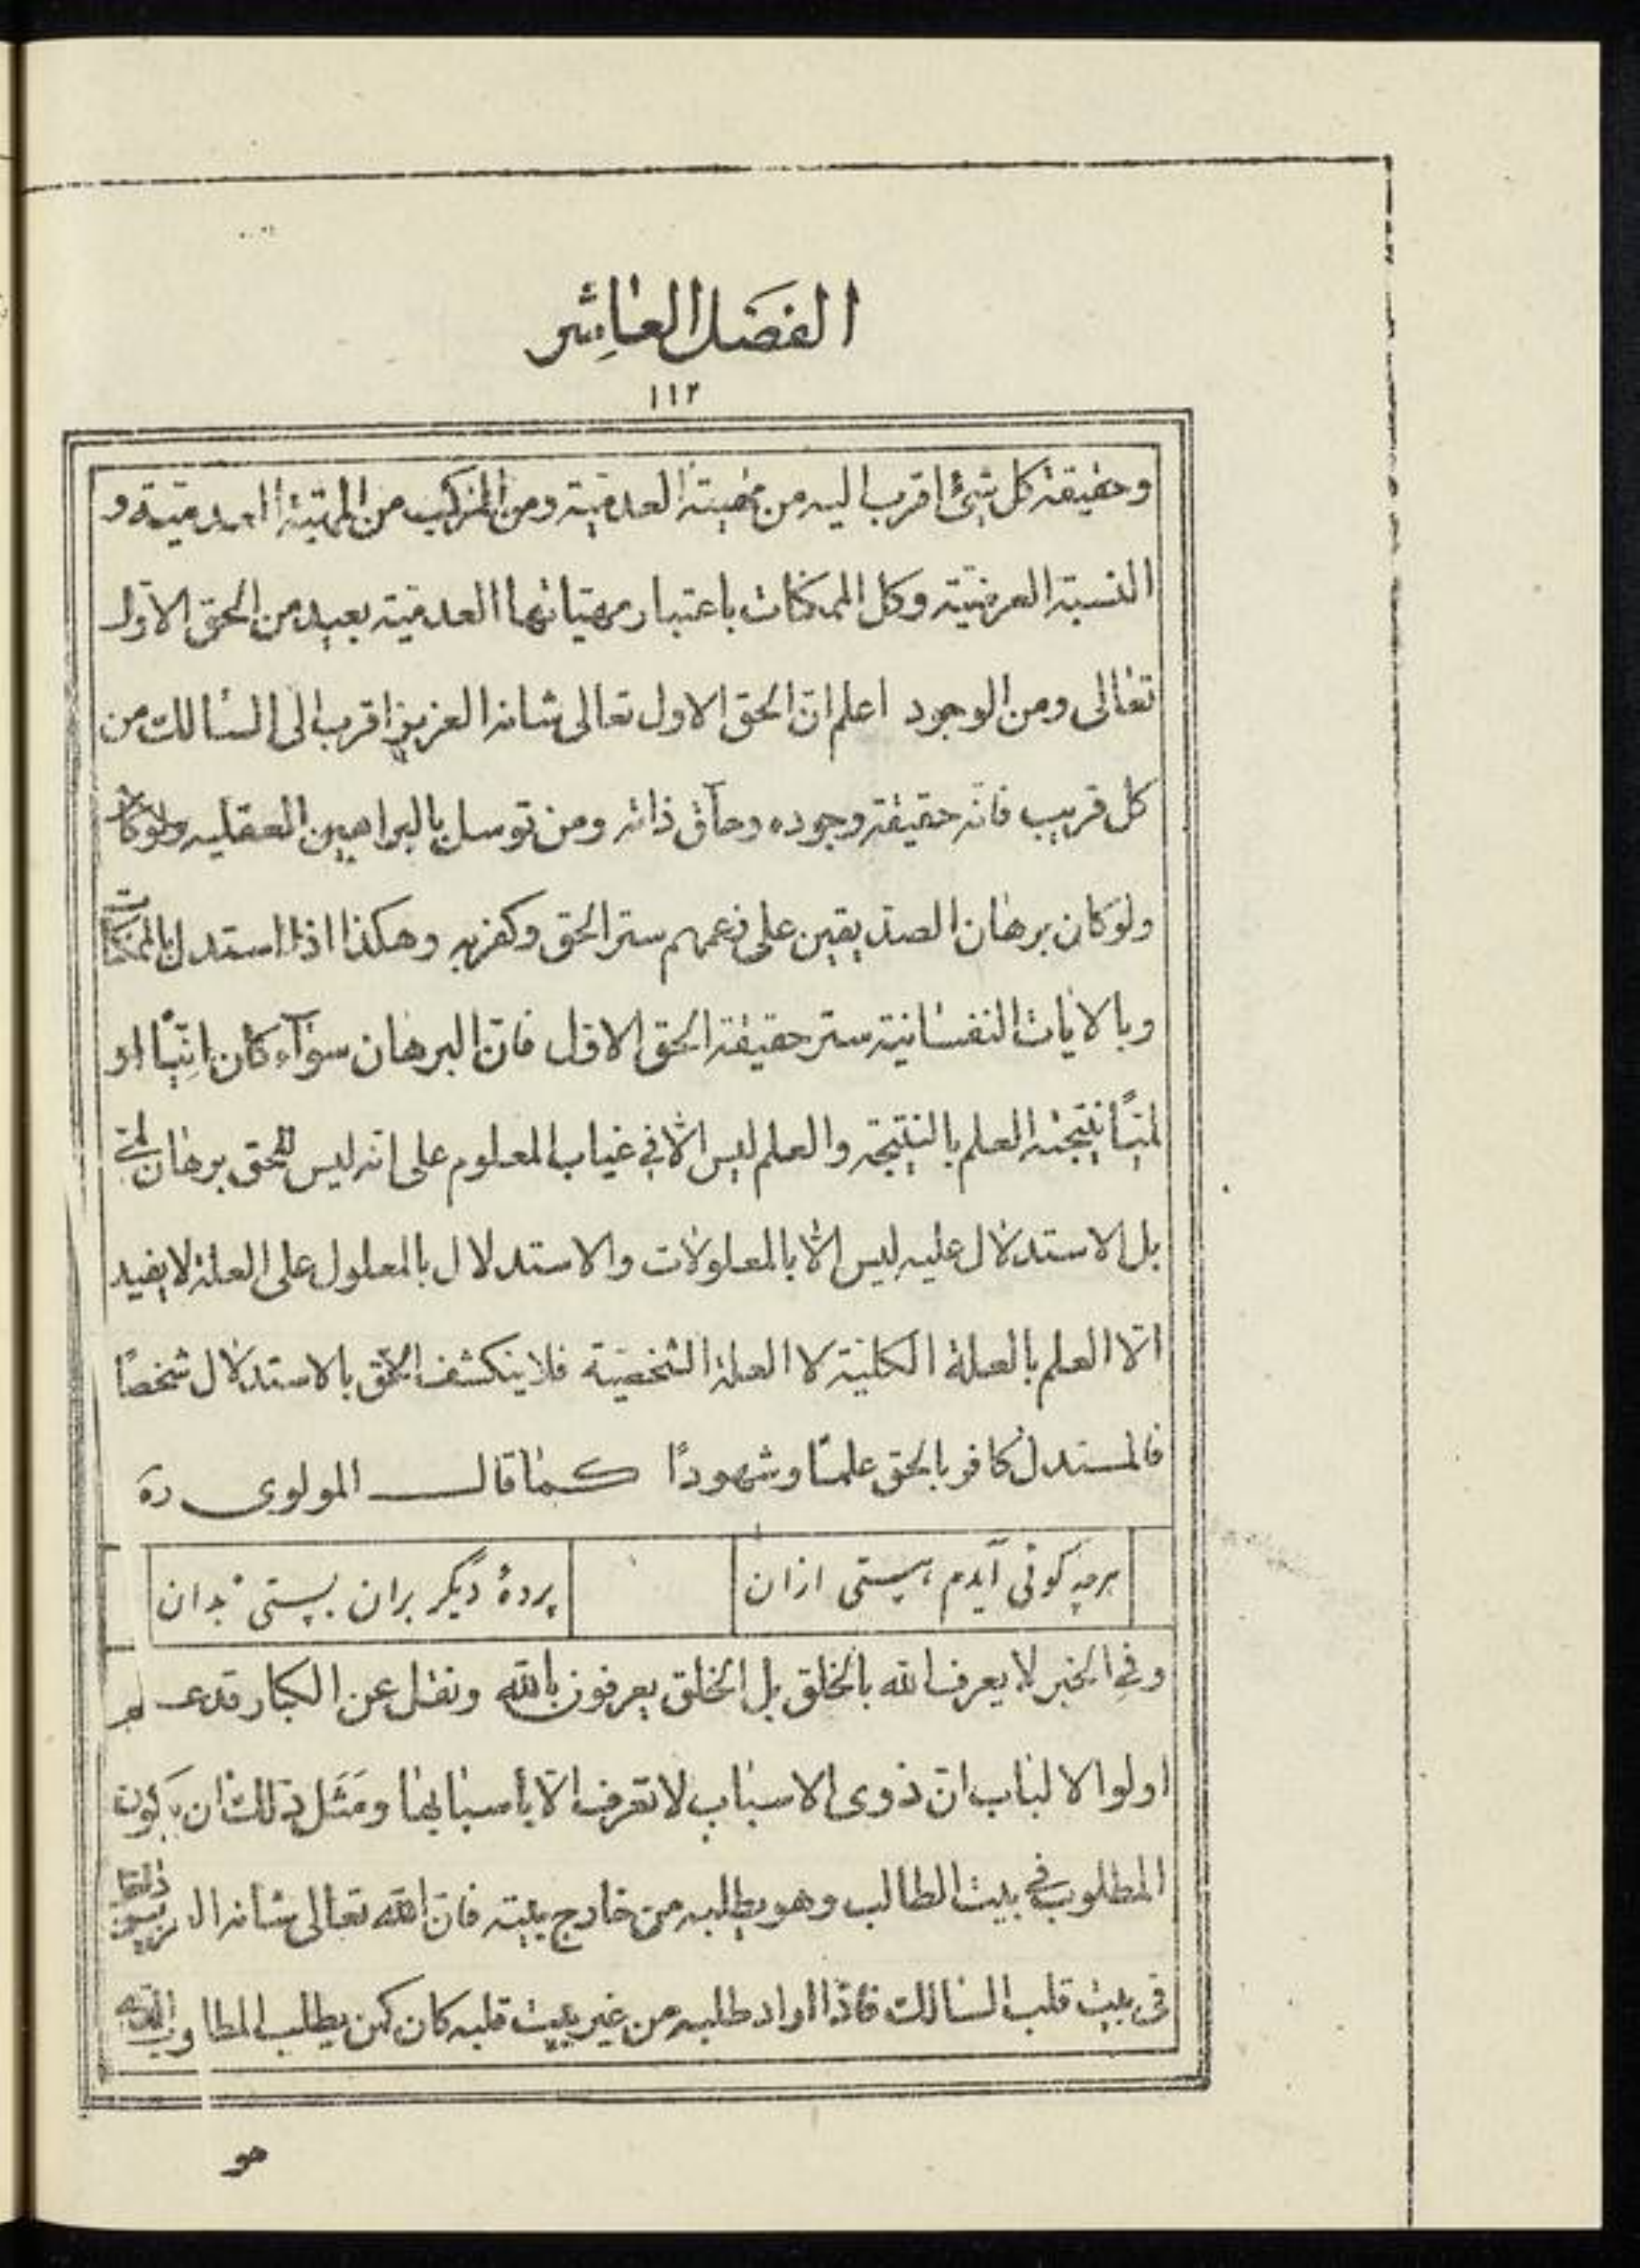 الفصل العاشر
١١٢
وحقيقة كل شئ اقرب اليه من مهيته العدمية ومن المركب من المهية العدمية و
النسبة العرضية وكل الممكنات باعتبار مهياتها العدمية بعيد من الحق الاول
تعالى ومن الوجود اعلم ان الحق الاول تعالى شانه العزيز اقرب الى السالك من
كل قريب فانه حقيقة وجوده وحاق ذاته ومن توسل بالبراهين العقليه ولوكان
ولوكان برهان الصديقين على زعمهم ستر الحق وكفر به وهكذا اذا استدل بالممكنات
وبالايات النفسانية ستر حقيقة الحق الاول فان البرهان سوآء كان انيّاً او
لميّاً نتيجته العلم بالنتيجة والعلم ليس الا في غياب المعلوم على انه ليس للحق برهان لمي
بل الاستدلال عليه ليس الا بالمعلولات والاستدلال بالمعلول على العلة لا يفيد
الا العلم بالعلة الكلية لا العلة الشخصية فلا ينكشف الحق بالاستدلال شخصًا
فالمستدل كافر بالحق علمًا وشهودًا كما قال المولوى ره
هرچه كوئى آيدم هستى ازان پردهٔ ديگر بران بستى بدان
وفي الخبر لا يعرف الله بالخلق بل الخلق يعرفون بالله ونقل عن الكبار قدعـ لم
اولوا الالباب ان ذوى الاسباب لا تعرف الا بأسبابها ومَثَل ذلك ان يكون
المطلوب في بيت الطالب وهو يطلبه من خارج بيته فان الله تعالى شانه
في بيت قلب السالك فاذا اراد طلبه من غير بيت قلبه كان كمن يطلب المطلوب الذى
هو